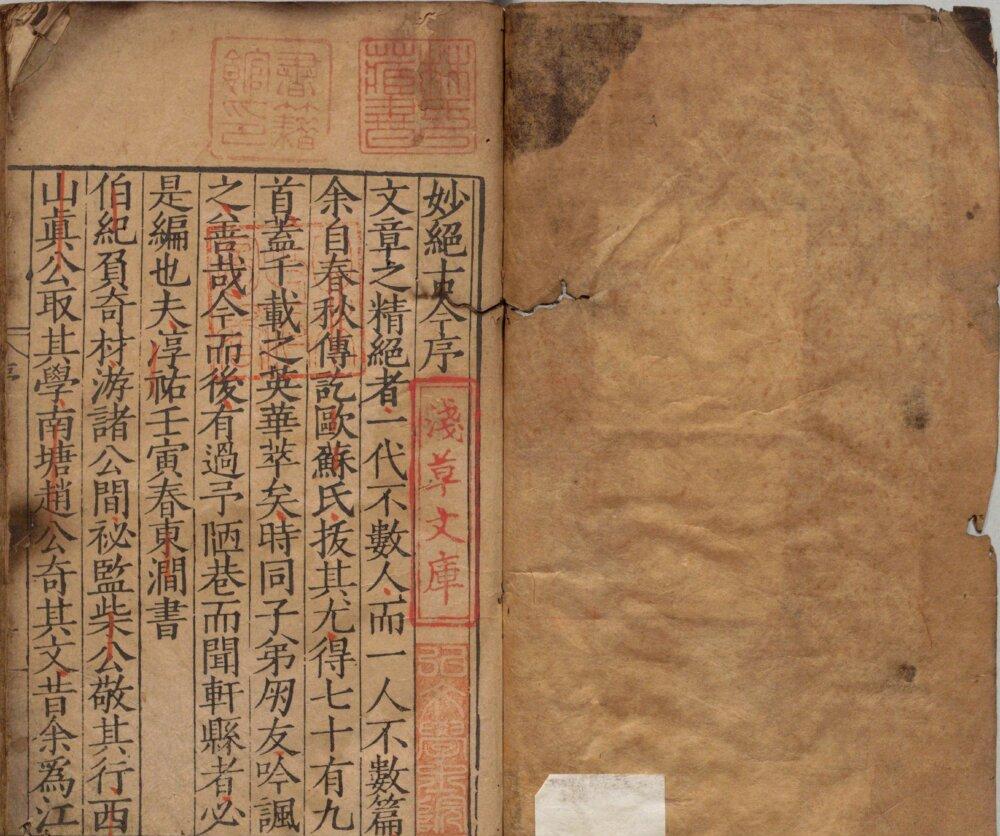 妙絕古今序
文章之精絕者一代不數人而一人不數篇
余自春秋傳訖歐蘇氏拔其尤得七十有九
首蓋千載之英華萃矣時同子弟朋友吟諷
之善哉今而後有過予陋巷而聞軒縣者必
是編也夫淳祐壬寅春東澗書
伯紀負奇材游諸公間祕監柴公敬其行西
山眞公取其學南塘趙公奇其文昔余爲江
林氏藏書
書籍館印
淺草文庫
弘文學士院